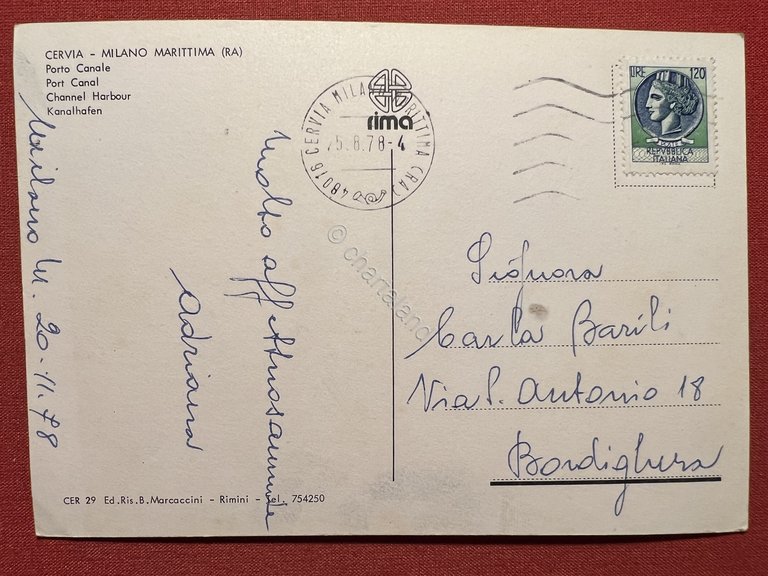 CERVIA - MILANO MARITTIMA (RA)
Porto Canale
Port Canal
Channel Harbour
Kanalhafen
rima
48016 CERVIA MILANO MARITTIMA (RA)
25.8.78-4
LIRE 120
REPVBBLICA
ITALIANA
Milano M. 20.11.78
Molto affettuosamente
Adriana
Signora
Carla Barili
Via S. Antonio 18
Bordighera
CER 29 Ed.Ris.B.Marcaccini - Rimini - Tel. 754250
© chartaland